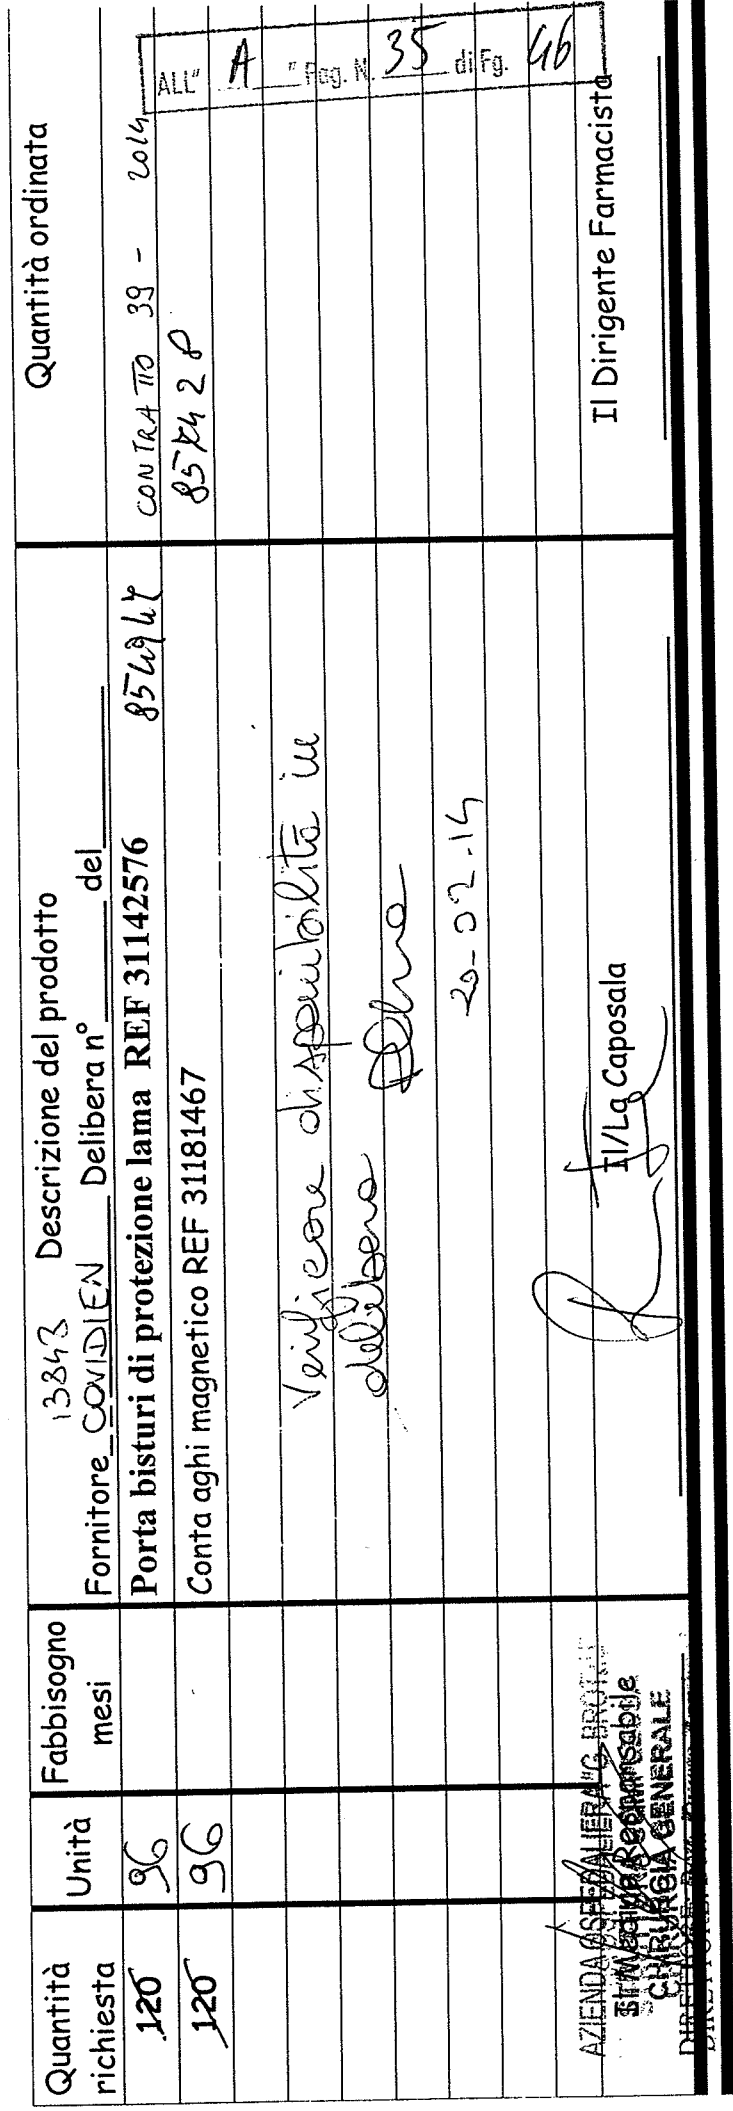 ALL" A " Pag. N. 35 di Fg. 46
Quantità richiesta
Unità
Fabbisogno mesi
13843 Descrizione del prodotto
Fornitore COVIDIEN Delibera n° ______ del ______
Quantità ordinata
120 96 Porta bisturi di protezione lama REF 31142576 CONTRATTO 39 - 2014
120 96 Conta aghi magnetico REF 31181467
Verificare disponibilità in
delibera
20-02-14
AZIENDA OSPEDALIERA "G. BROTZU"
Il Medico Responsabile
CHIRURGIA GENERALE
Il/La Caposala
Il Dirigente Farmacista